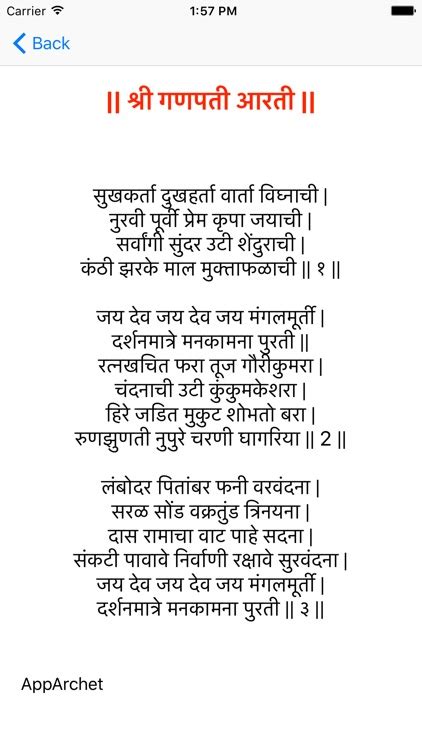 Carrier 1:57 PM
Back
|| श्री गणपती आरती ||
सुखकर्ता दुखहर्ता वार्ता विघ्नाची |
नुरवी पूर्वी प्रेम कृपा जयाची |
सर्वांगी सुंदर उटी शेंदुराची |
कंठी झरके माल मुक्ताफळाची || १ ||
जय देव जय देव जय मंगलमूर्ती |
दर्शनमात्रे मनकामना पुरती ||
रत्नखचित फरा तूज गौरीकुमरा |
चंदनाची उटी कुंकुमकेशरा |
हिरे जडित मुकुट शोभतो बरा |
रुणझुणती नुपुरे चरणी घागरिया || 2 ||
लंबोदर पितांबर फनी वरवंदना |
सरळ सोंड वक्रतुंड त्रिनयना |
दास रामाचा वाट पाहे सदना |
संकटी पावावे निर्वाणी रक्षावे सुरवंदना |
जय देव जय देव जय मंगलमूर्ती |
दर्शनमात्रे मनकामना पुरती || ३ ||
AppArchet